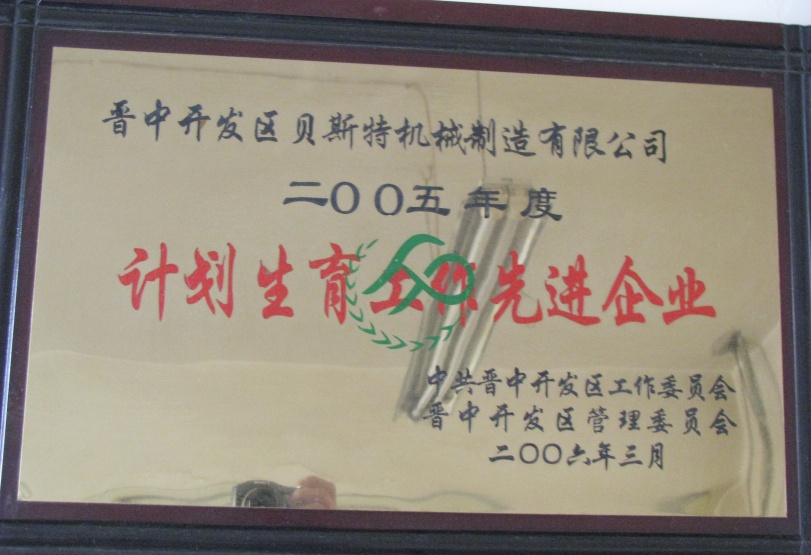 晋中开发区贝斯特机械制造有限公司
二〇〇五年度
计划生育工作先进企业
中共晋中开发区工作委员会
晋中开发区管理委员会
二〇〇六年三月